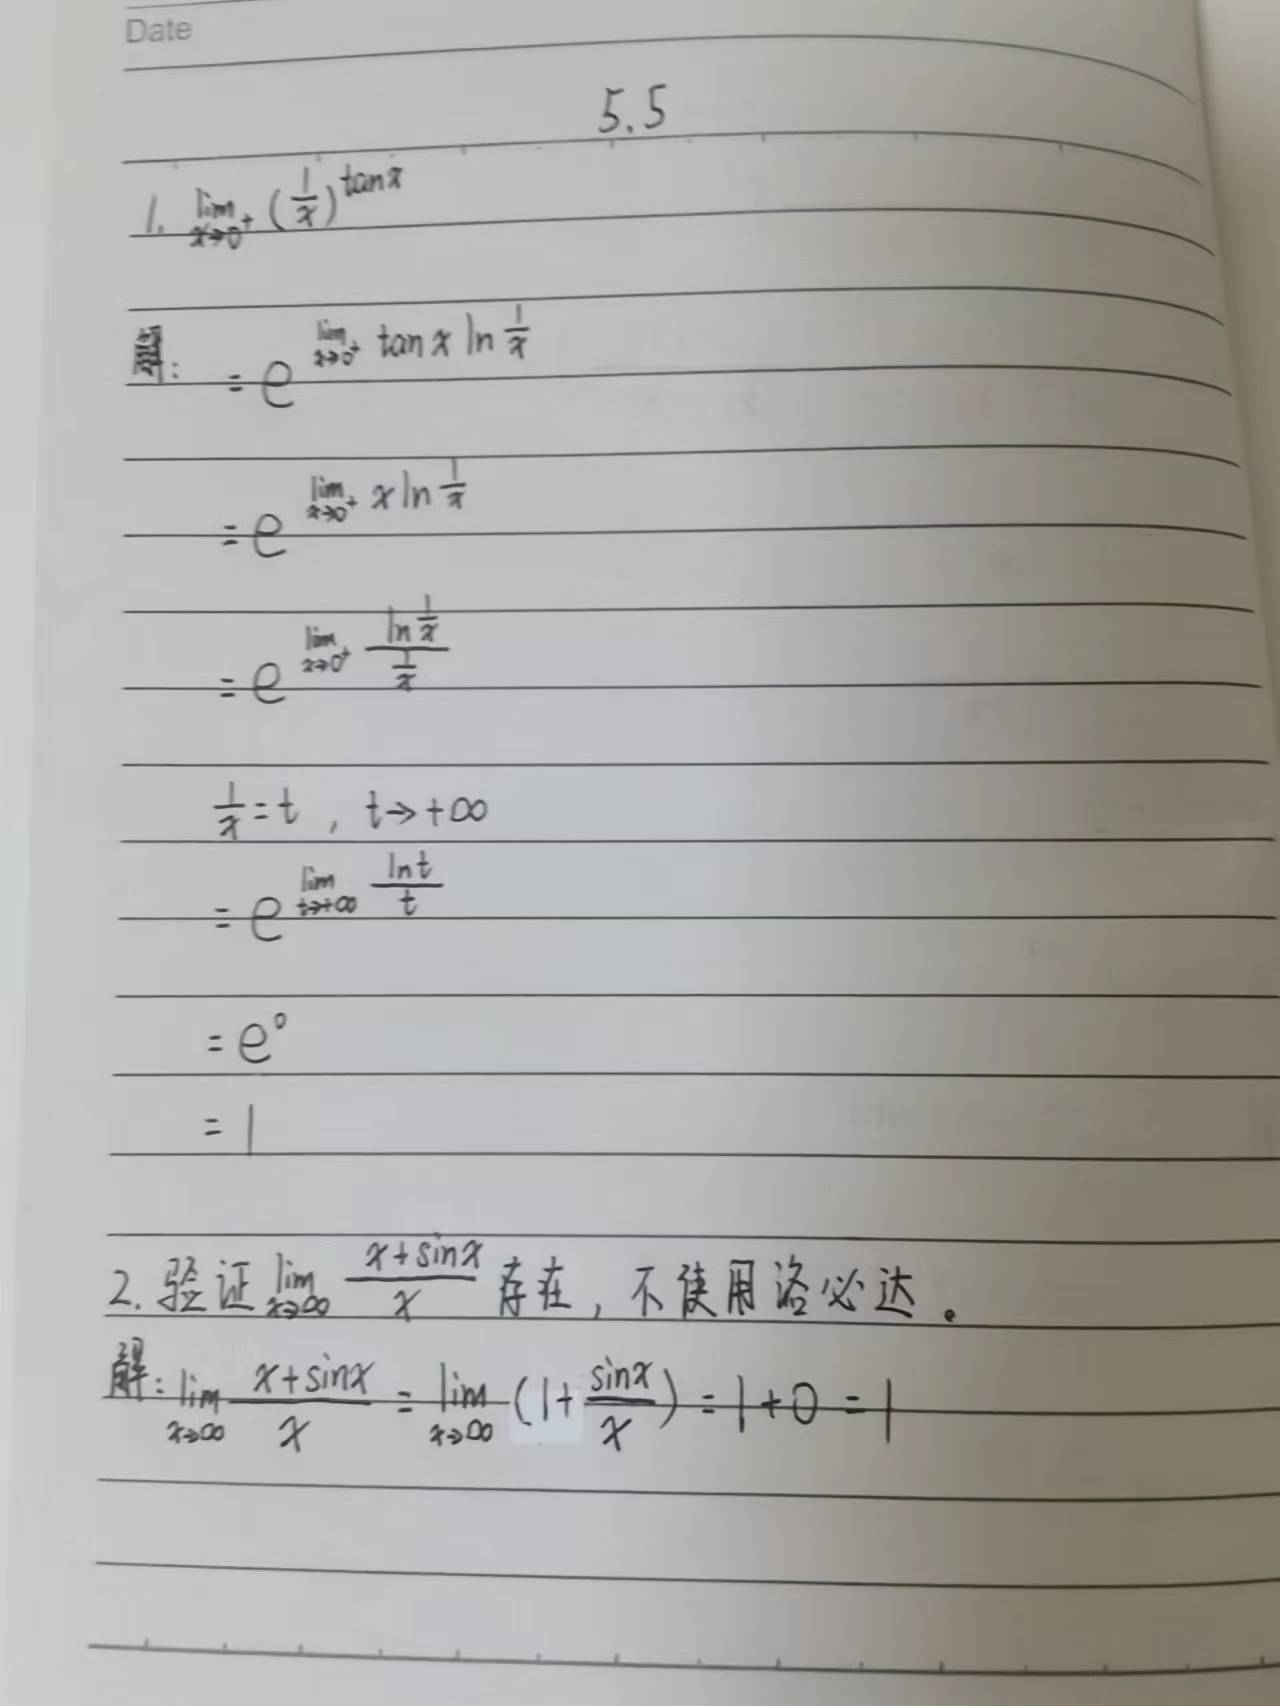 Date
5.5
1. lim x→0⁺ (1/x)^tanx
解: = e^(lim x→0⁺ tanx ln 1/x)
= e^(lim x→0⁺ x ln 1/x)
= e^(lim x→0⁺ (ln 1/x)/(1/x))
1/x = t , t→+∞
= e^(lim t→+∞ lnt/t)
= e⁰
= 1
2. 验证 lim x→∞ (x+sinx)/x 存在, 不使用洛必达。
解: lim x→∞ (x+sinx)/x = lim x→∞ (1+ sinx/x) = 1+0 = 1